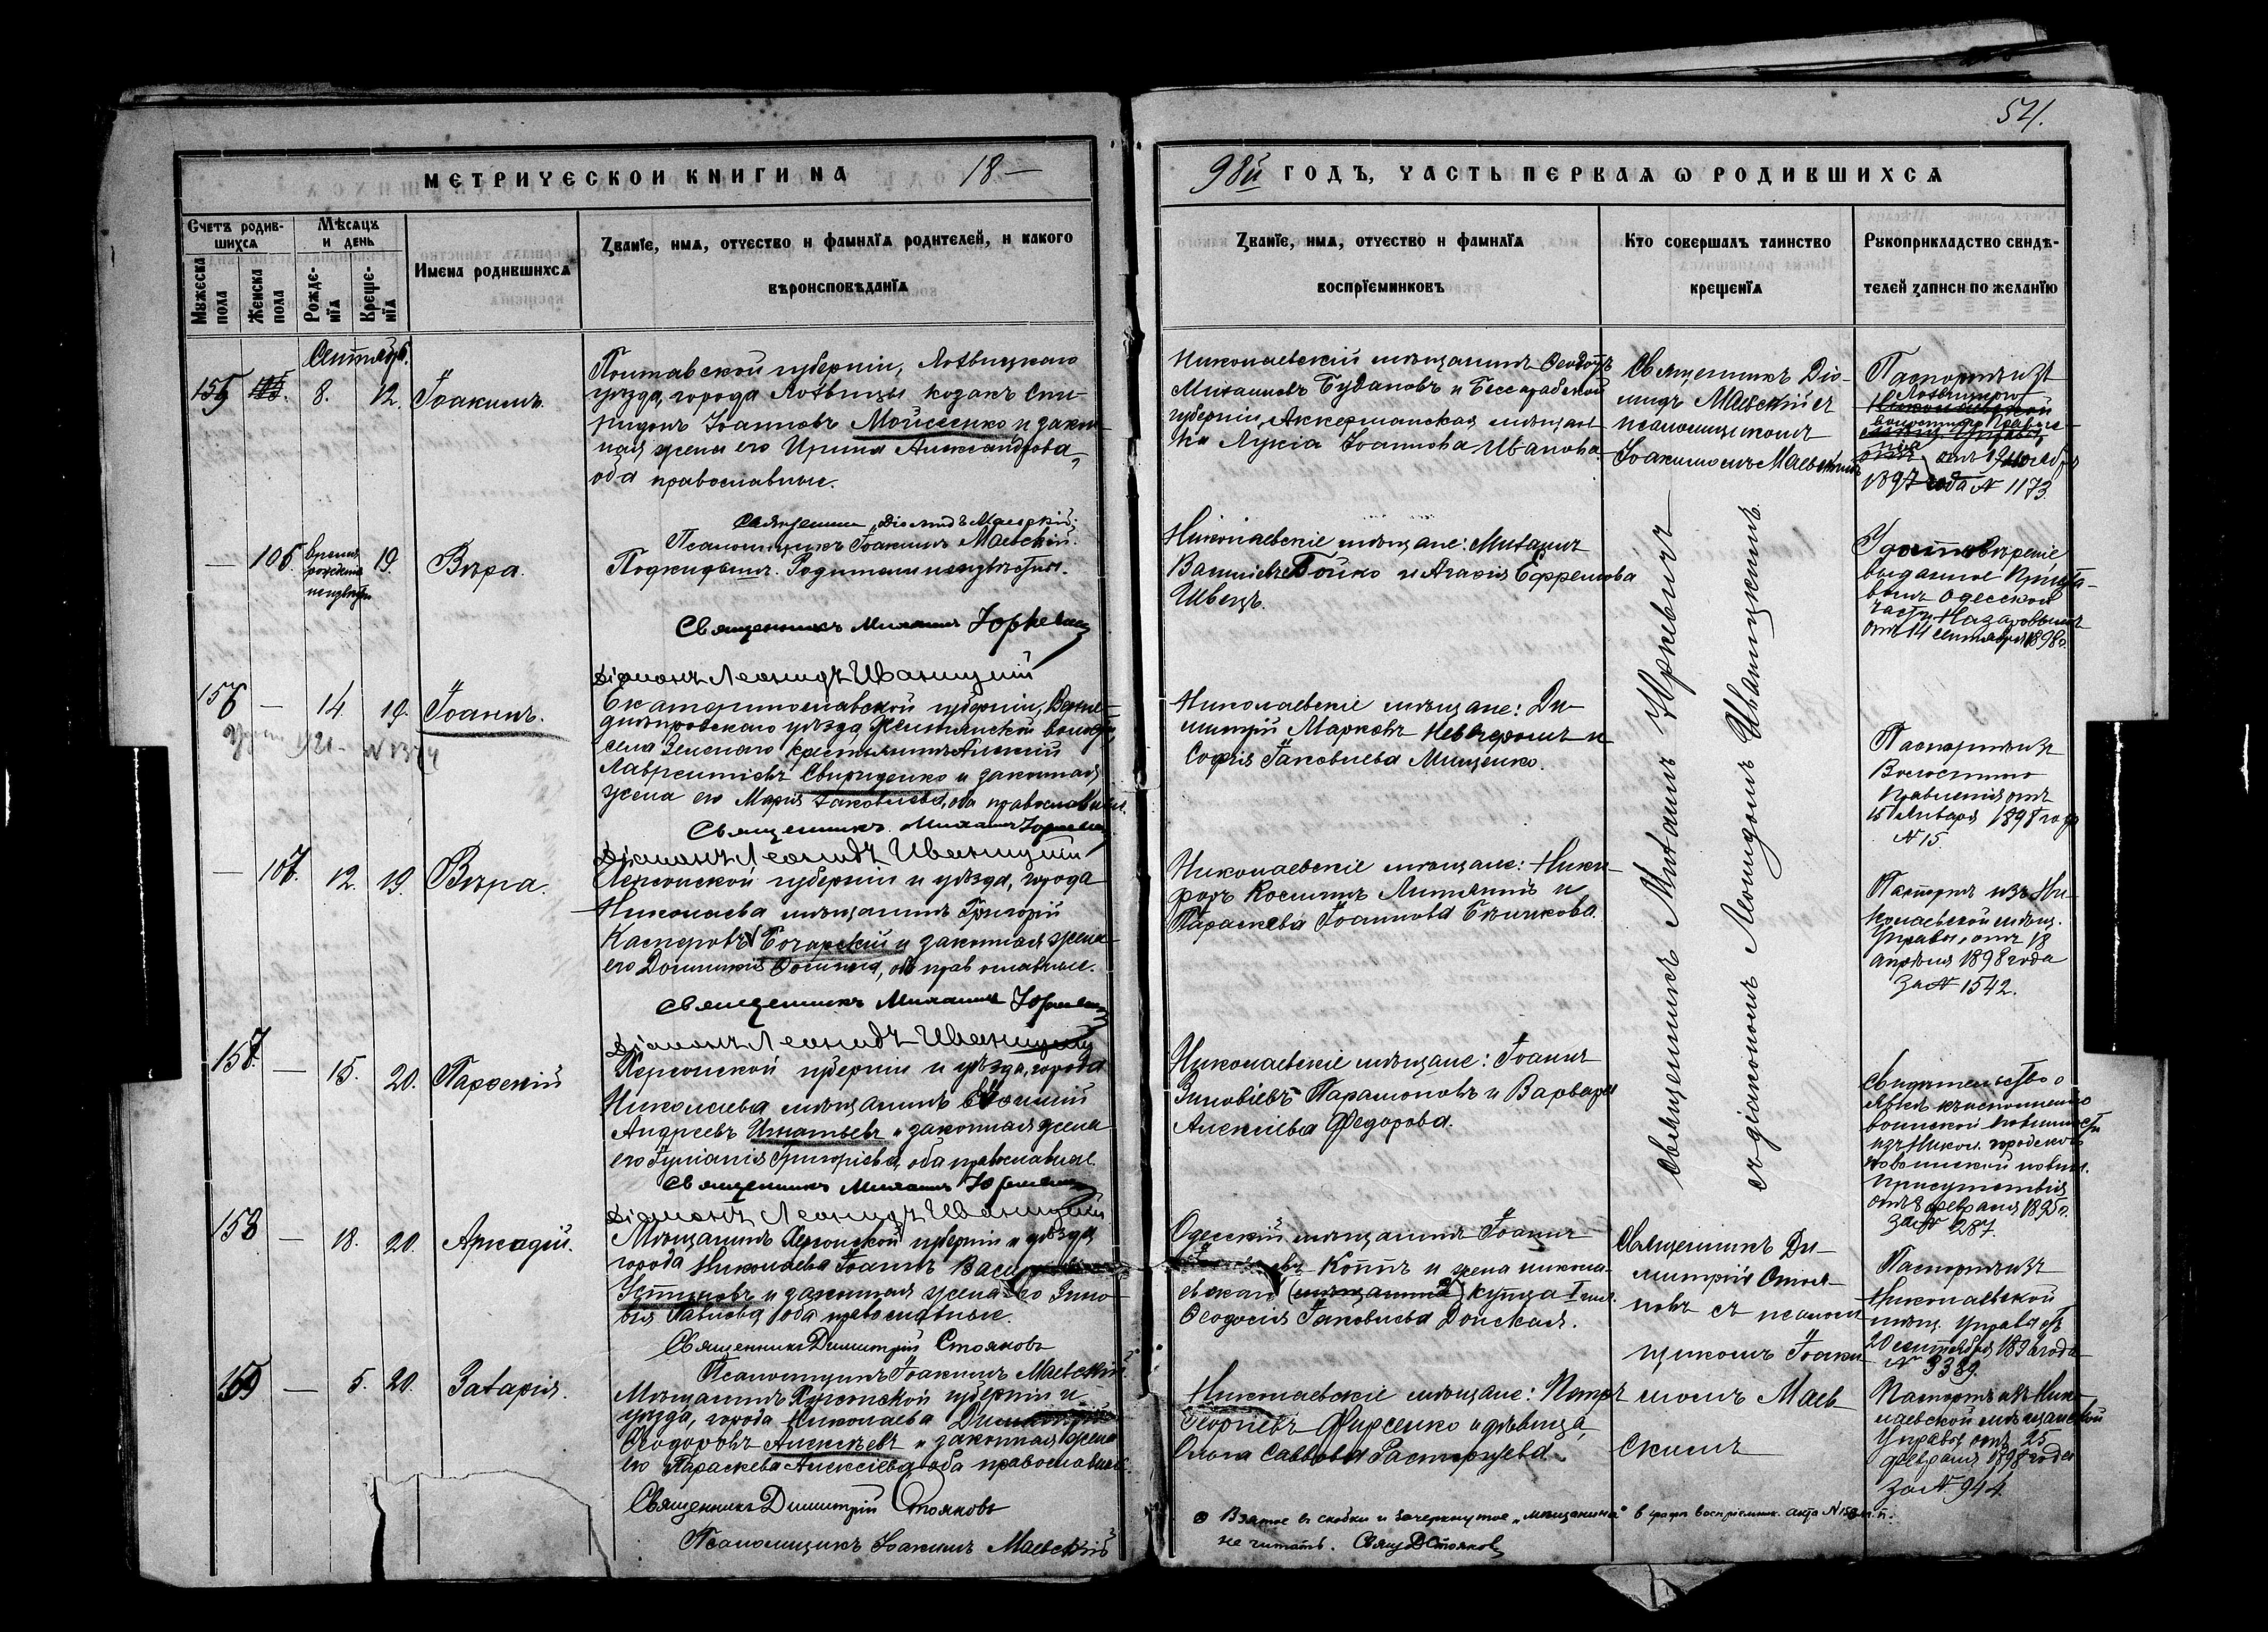 54.
МЕТРИЧЕСКОЙ КНИГИ НА 18—
98й ГОДЪ, ЧАСТЬ ПЕРВАЯ Ѡ РОДИВШИХСЯ
Счетъ родив-
шихся
Мѣсяцъ
и день
Мужеска
пола
Женска
пола
Рожде-
нїя
Креще-
нїя
Имена родившихся
Званїе, имя, отчество и фамилїя родителей, и какого
вѣроисповѣданїя
Званїе, имя, отчество и фамилїя
воспрїемниковъ
Кто совершалъ таинство
крещенїя
Рукоприкладство свидѣ-
телей записи по желанїю
Сентябрь.
155 8. 12. Іоакимъ.
Полтавской губерніи, Лохвицкаго
уѣзда, города Лохвицы козакъ Спи-
ридонъ Іоанновъ Мойсеенко и закон-
ная жена его Ирина Александрова,
оба православные.
Священникъ Діомидъ Маевскій;
Псаломщикъ Іоакимъ Маевскій.
Николаевскій мѣщанинъ Ѳеодотъ
Михаиловъ Будановъ и Бессарабской
губерніи, Аккерманская мѣщан-
ка Лукія Іоаннова Иванова.
Священникъ Діо-
мидъ Маевскій съ
псаломщикомъ
Іоакимомъ Маевскимъ
Паспортъ изъ
Лохвицкаго
волостнаго Правле-
нія отъ 19
1897 года № 1173.
— 106. время
рожденія
неизвѣстно 19. Вѣра.
Подкидышъ. Родители неизвѣстны.
Священникъ Михаилъ Юркевичъ
Діаконъ Леонидъ Иваницкій
Николаевскіе мѣщане: Михаилъ
Бойко и Агафія Ефремова
Швецъ.
Священникъ Михаилъ Юркевичъ
съ діакономъ Леонидомъ Иваницкимъ.
Удостовѣреніе
выданное Приста-
вомъ Одесской
части Назаровымъ
отъ 14 сентября 1898 г.
156 — 14. 19. Іоаннъ.
1921 — №
Екатеринославской губерніи, Верхне-
днѣпровскаго уѣзда, волости,
села крестьянинъ Алексій
Лаврентіевъ Свириденко и законная
жена его Марія Іаковлева, оба православные.
Священникъ Михаилъ Юркевичъ
Діаконъ Леонидъ Иваницкій
Николаевскіе мѣщане: Ди-
митрій Марковъ и
Софія Іаковлева Мищенко.
Паспортъ изъ
Волостнаго
Правленія отъ
15 Января 1898 года
№ 15.
— 107. 12. 19. Вѣра.
Херсонской губерніи и уѣзда, города
Николаева мѣщанинъ Григорій
Касперовъ Бочарскій и законная жена
его Домникія Ѳомина, оба православные.
Священникъ Михаилъ Юркевичъ
Діаконъ Леонидъ Иваницкій
Николаевскіе мѣщане: Ники-
форъ Косминъ и
Параскева Іоаннова Бычкова.
Паспортъ изъ Ни-
колаевской мѣщ.
Управы, отъ 18
апрѣля 1898 года
за № 1542.
157. — 15. 20. Парѳеній
Херсонской губерніи и уѣзда, города
Николаева мѣщанинъ
Андреевъ Игнатьевъ и законная жена
его Іуліанія Григоріева, оба православные.
Священникъ Михаилъ Юркевичъ
Діаконъ Леонидъ Иваницкій
Николаевскіе мѣщане: Іоаннъ
Зиновіевъ Парамоновъ и Варвара
Алексіева Федорова.
Свидѣтельство о
явкѣ къ исполненію
воинской повинности
изъ Никол. городскаго
по воинской повин.
присутствія
отъ 8 февраля 1895 г.
за № 287.
158 — 18. 20. Аркадій.
Мѣщанинъ Херсонской губерніи и уѣзда
города Николаева Іоаннъ
Устиновъ и законная жена его Зино-
вія Павлова, оба православные.
Священникъ Димитрій Стояновъ
Псаломщикъ Іоакимъ Маевскій.
Одесскій мѣщанинъ Іоаннъ
Коппъ и жена никола-
евскаго (мѣщанина) купца I гил.
Ѳеодосія Іаковлева Донская.
Священникъ Ди-
митрій Стоя-
новъ съ псалом-
щикомъ Іоаки-
момъ Маев-
скимъ
Паспортъ изъ
Николаевской
мѣщ. управы отъ
20 сентября года
№ 3389.
159 — 5. 20. Захарія.
Мѣщанинъ Херсонской губерніи и
уѣзда, города Николаева
Ѳеодоровъ Алексѣевъ и законная жена
его Параскева Алексіева, оба православные.
Священникъ Димитрій Стояновъ
Псаломщикъ Іоакимъ Маевскій
Николаевскіе мѣщане: Петръ
Георгіевъ Фирсенко и дѣвица,
Ольга Саввова Расторгуева.
Паспортъ изъ Нико-
лаевской мѣщанской
Управы отъ 25
февраля 1898 года
за № 944.
Взятое въ скобки и зачеркнутое „мѣщанина" в графѣ воспріемник. акта № 158 м. п.
не читать. Свящ. Д Стояновъ